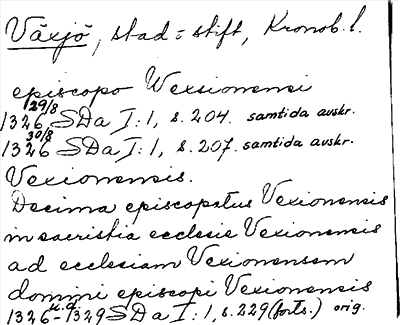 Växjö, stad = stift, Kronob. l.
episcopo Wexionensi
1326 29/8 SDa I:1, s. 204. samtida avskr.
1326 30/8 SDa I:1, s. 207. samtida avskr.
Vexionensis.
Decima episcopatus Vexionensis
in sacristia ecclesie Vexionensis
ad ecclesiam Vexionensem
domini episcopi Vexionensis
1326 u.d. - 1329 SDa I:1, s. 229 (forts.) orig.